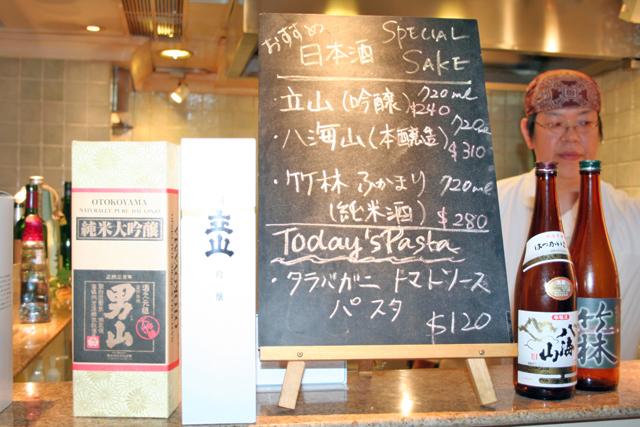 おすすめ
日本酒
SPECIAL
SAKE
・立山(吟醸) 720ml
$240
・八海山(本醸造) 720ml
$310
・竹林 ふかまり 720ml
(純米酒) $280
Today's Pasta
・タラバガニ トマトソース
パスタ
$120
OTOKOYAMA
NATURALLY PURE DAI GINJO
純米大吟醸
男山
立山
吟醸
はっかいさん
八海山
竹林